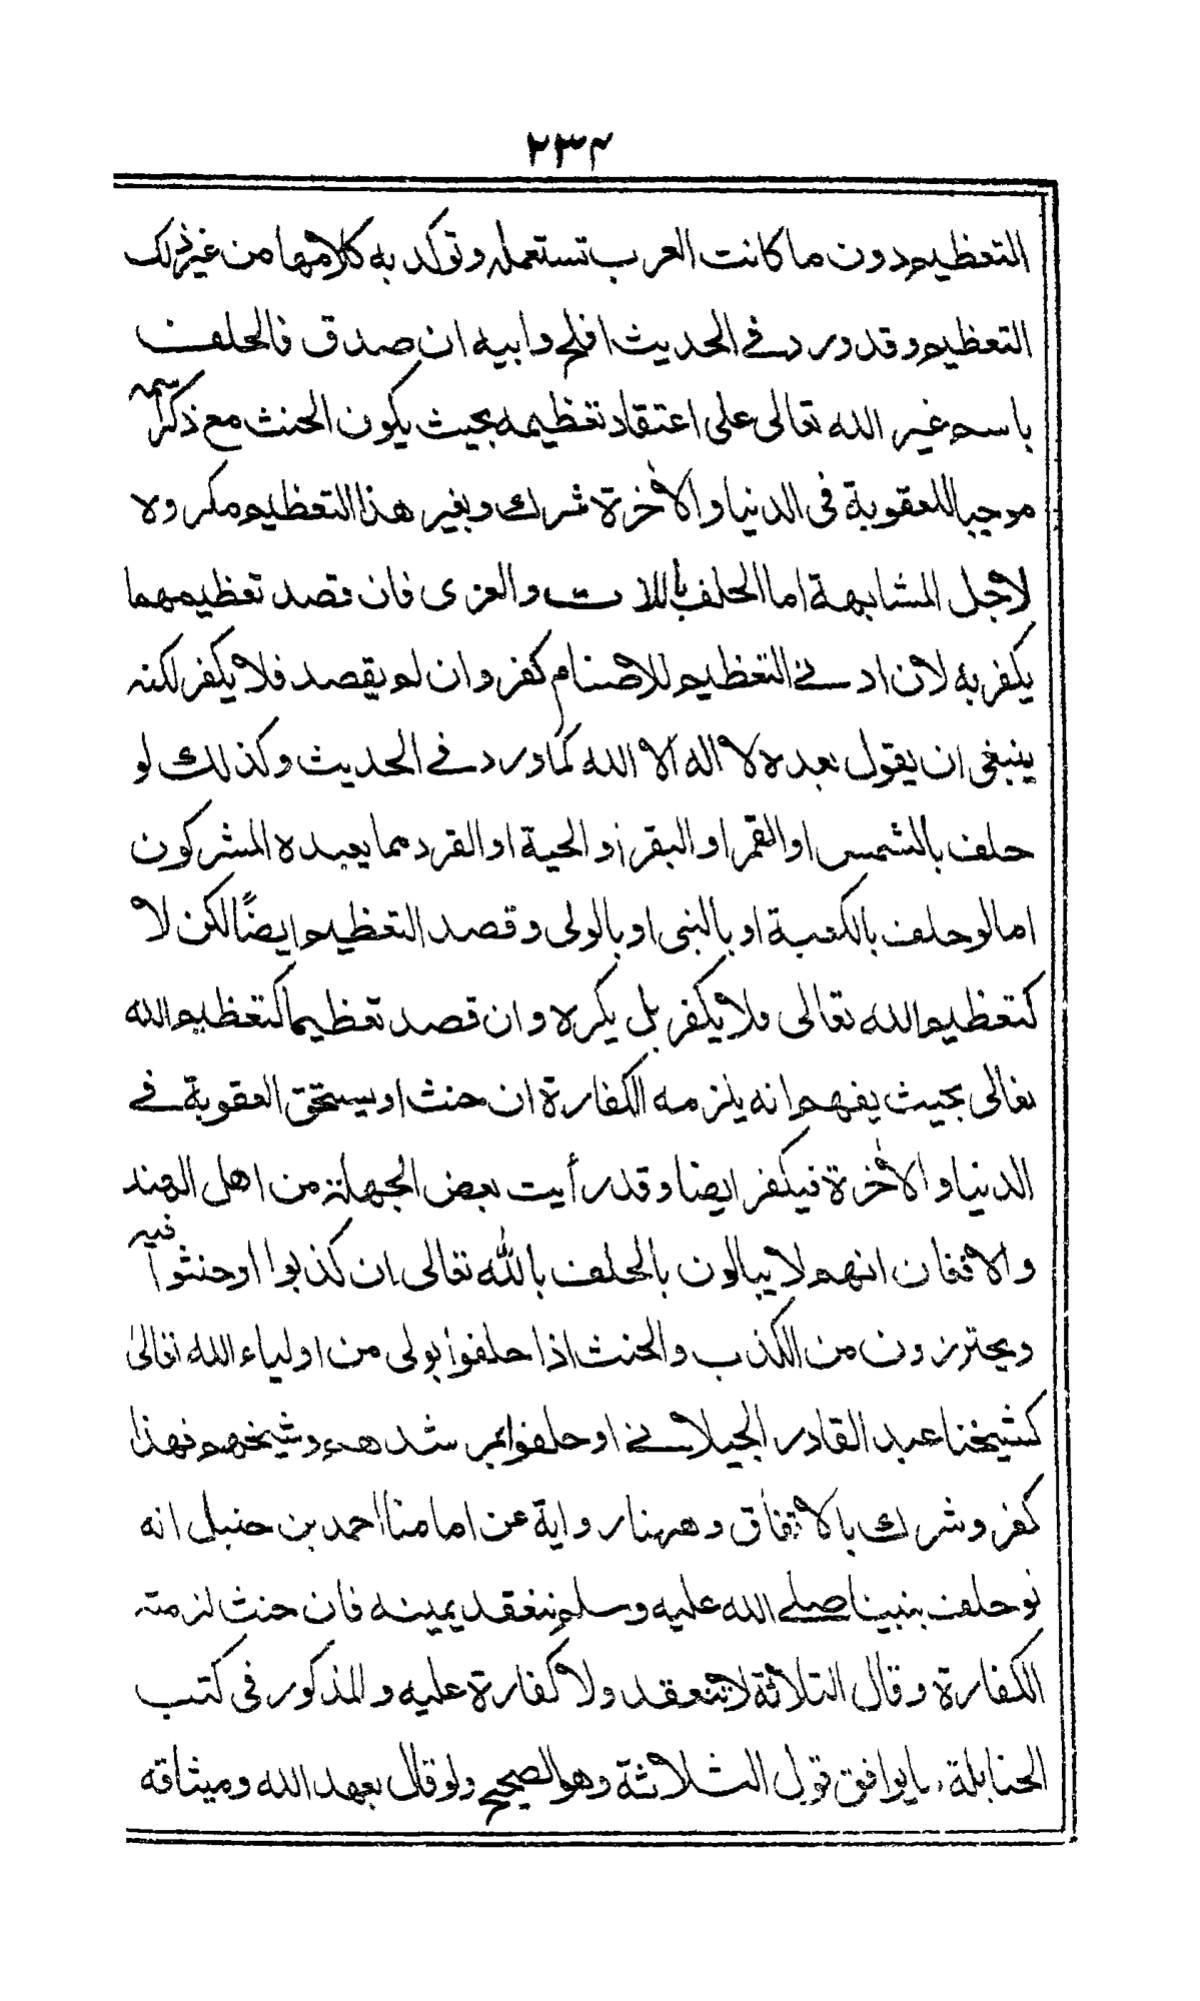 ٢٣٢
التعظيم دون ما كانت العرب تستعمله وتوكد به كلامها من غير ذلك
التعظيم وقد ورد في الحديث افلح وابيه ان صدق فالحلف
باسم غير الله تعالى على اعتقاد تعظيمه بحيث يكون الحنث مع ذكر اسمه
موجبا للعقوبة فى الدنيا والاخرة شرك وبغير هذا التعظيم مكروه
لاجل المشابهة اما الحلف باللات والعزى فان قصد تعظيمهما
يكفر به لان ادنى التعظيم للاصنام كفر وان لم يقصد فلا يكفر لكنه
ينبغى ان يقول بعده لا اله الا الله كما ورد في الحديث وكذلك لو
حلف بالشمس او القمر او البقر او الحية او القرد مما يعبده المشركون
اما لو حلف بالكعبة او بالنبى او بالولى وقصد التعظيم ايضًا لكن لا
كتعظيم الله تعالى فلا يكفر بل يكره وان قصد تعظيما كتعظيم الله
تعالى بحيث يفهم انه يلزمه الكفارة ان حنث او يستحق العقوبة في
الدنيا والاخرة فيكفر ايضا وقد رأيت بعض الجهلة من اهل الهند
والافغان انهم لا يبالون بالحلف بالله تعالى ان كذبوا او حنثوا فيه
ويحترزون من الكذب والحنث اذا حلفوا بولى من اولياء الله تعالى
كشيخنا عبد القادر الجيلاني او حلفوا بمرشدهم وشيخهم فهذا
كفر وشرك بالاتفاق وههنا رواية عن امامنا احمد بن حنبل انه
لو حلف بنبينا صلے الله عليه وسلم تنعقد يمينه فان حنث لزمته
الكفارة وقال الثلاثة لا تنعقد ولا كفارة عليه والمذكور فى كتب
الحنابلة ما يوافق قول الثلاثة وهو الصحيح ولو قال بعهد الله وميثاقه